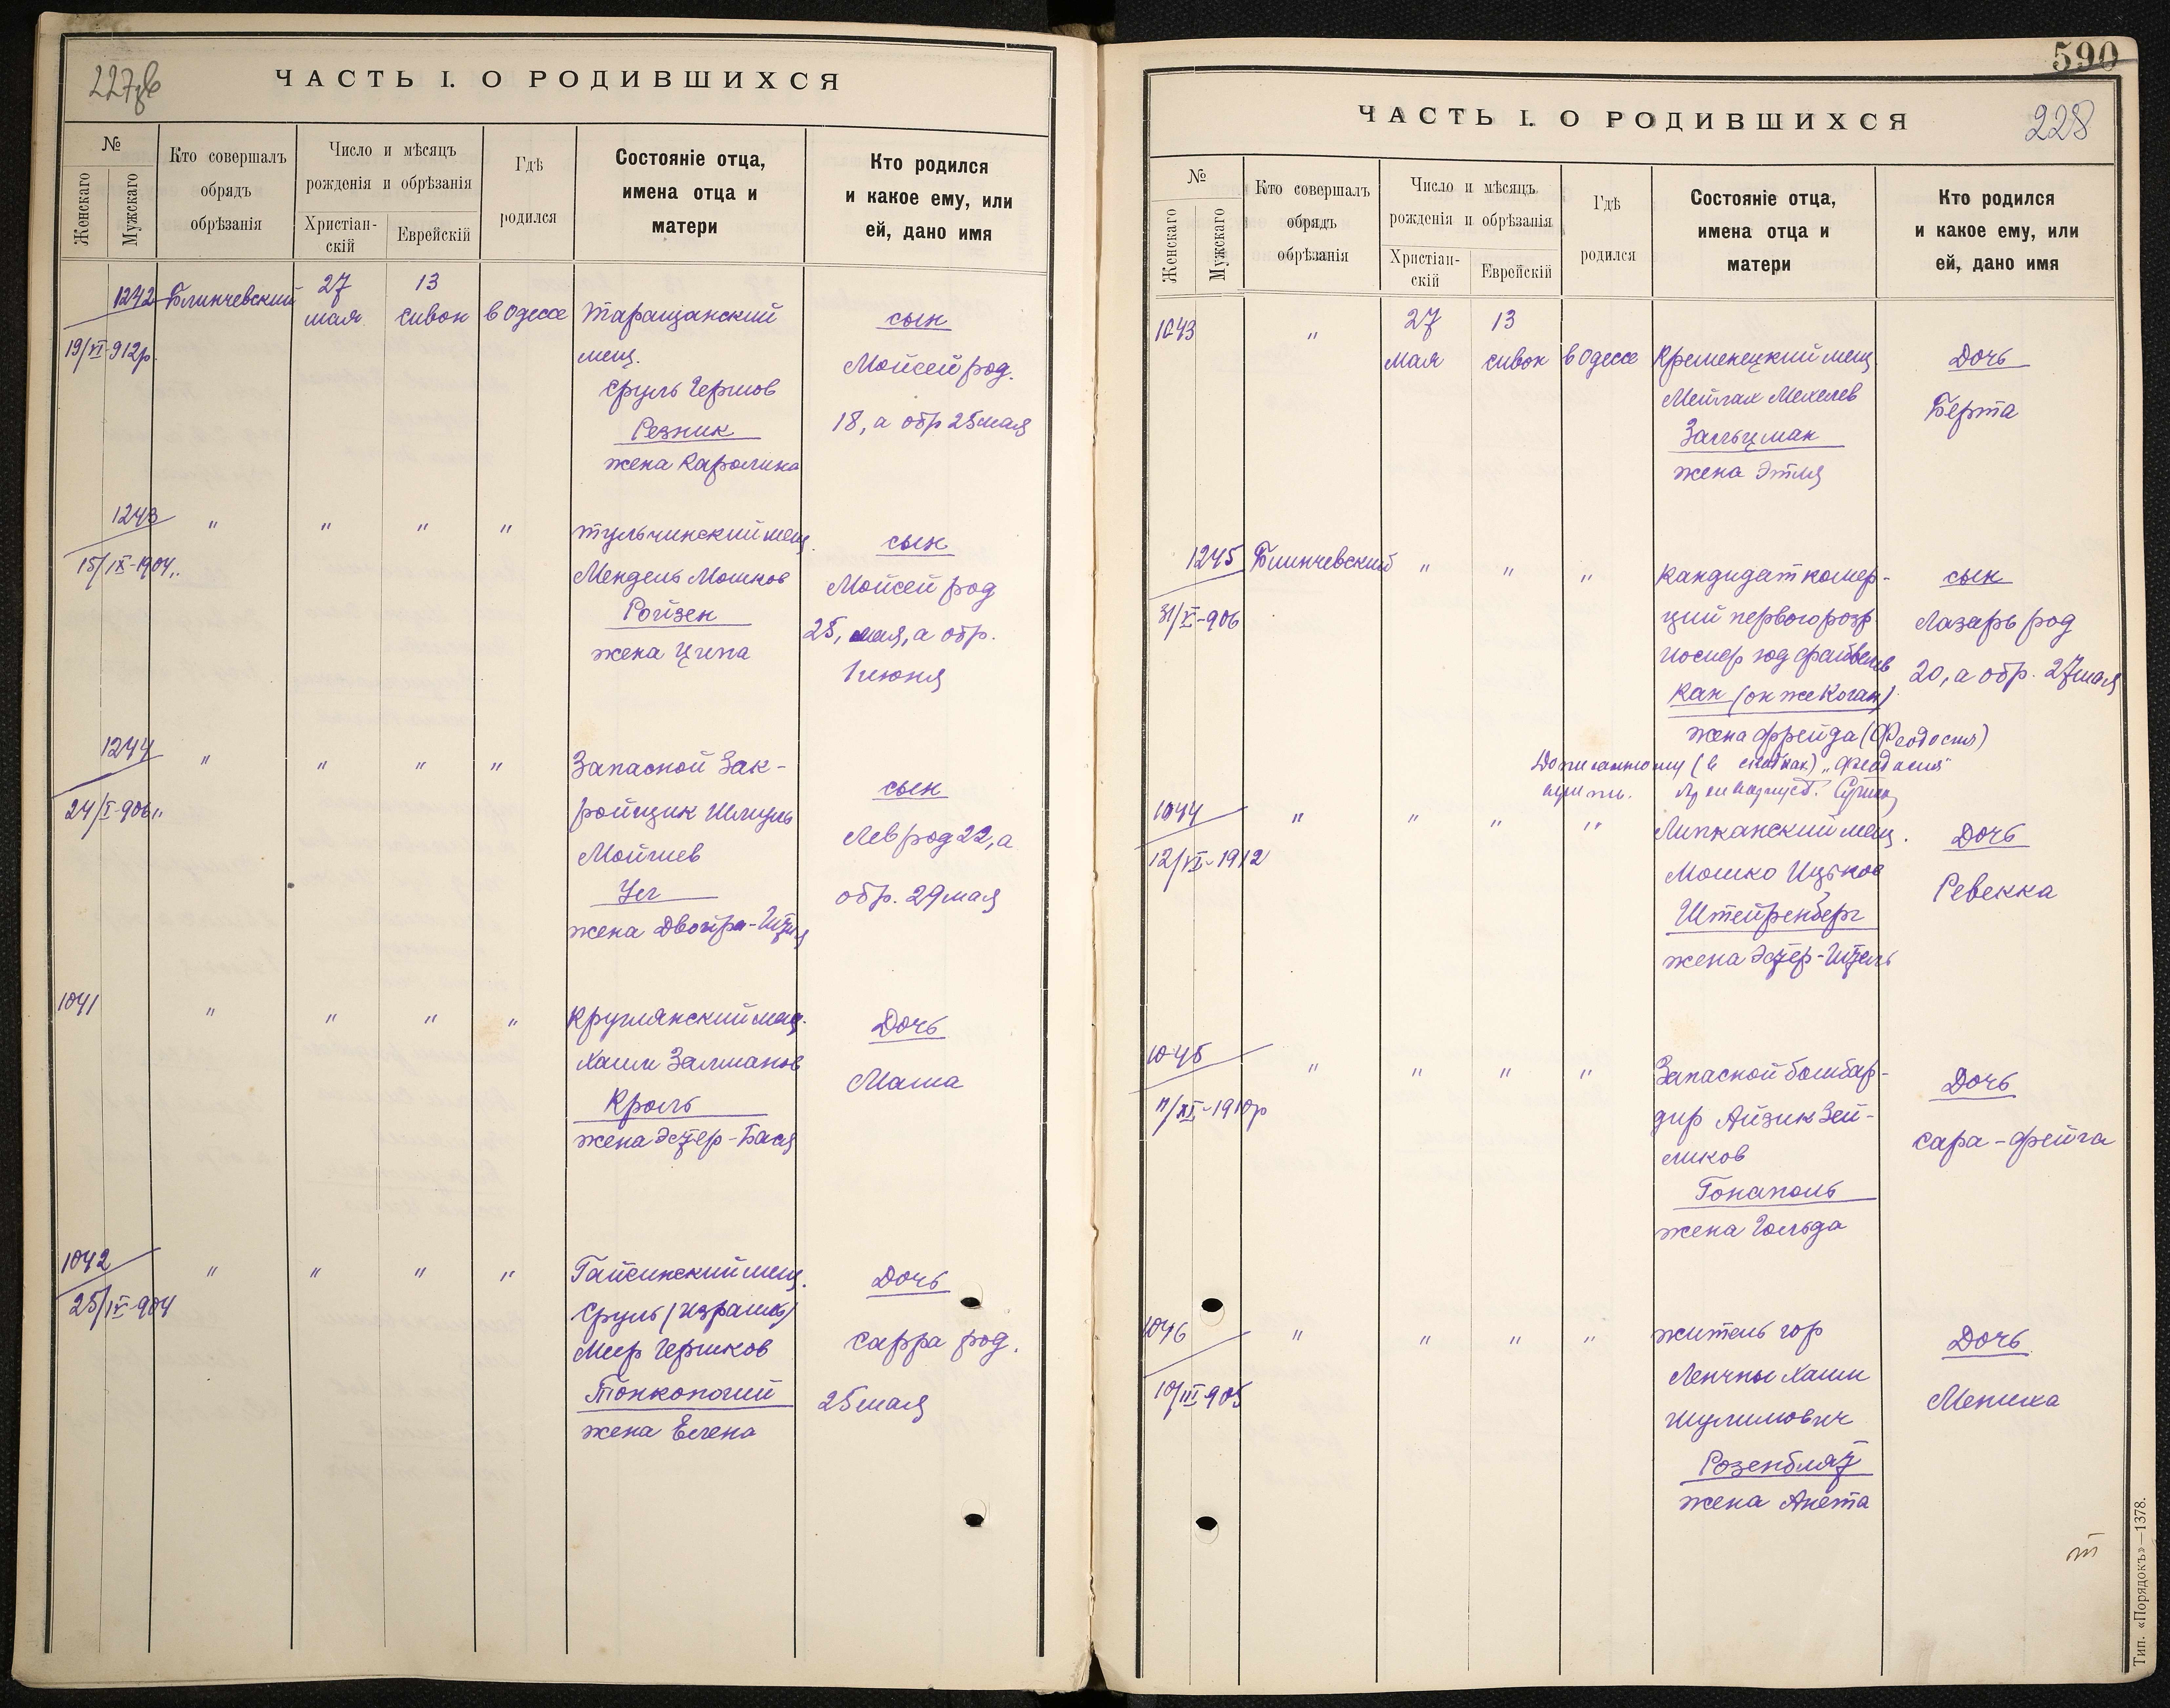 227об
ЧАСТЬ I. О РОДИВШИХСЯ
№
Женскаго
Мужскаго
Кто совершалъ
обрядъ
обрѣзанія
Число и мѣсяцъ
рожденія и обрѣзанія
Христіан-
скій
Еврейскій
Гдѣ
родился
Состояніе отца,
имена отца и
матери
Кто родился
и какое ему, или
ей, дано имя
1242 Блинчевский 27 мая 13 Сивон в Одессе
19/VI-912р.
Таращанский
мещ.
Сруль Гершов
Резник
жена Каролина
сын
Мойсей род.
18, а обр 25 мая
1243 " " " "
15/IX-1904
Тульчинский мещ.
Мендель Мошков
Ройзен
жена Ципа
сын
Мойсей род
25, мая, а обр.
1 июня
1244 " " " "
24/I-906
Запасной Зак-
ройщик Шмуль
Мойшев
Уг
жена Двойра-
сын
Лев род 22, а
обр. 29 мая
1041 " " " "
Круглянский мещ.
Хаим Залманов
Кроль
жена Эстер-Бася
Дочь
Маша
1042 " " " "
25/IV-904
Гайсинский мещ.
Сруль (Израиль)
Меер Гершков
Тонконогий
жена Елена
Дочь
Сарра род.
25 мая
590
228
ЧАСТЬ I. О РОДИВШИХСЯ
№
Женскаго
Мужскаго
Кто совершалъ
обрядъ
обрѣзанія
Число и мѣсяцъ
рожденія и обрѣзанія
Христіан-
скій
Еврейскій
Гдѣ
родился
Состояніе отца,
имена отца и
матери
Кто родился
и какое ему, или
ей, дано имя
1043 " 27 мая 13 сивон в Одессе
Кременецкий мещ.
Мейлах Мехелев
Зальцман
жена Этля
Дочь
Берта
1245 Блинчевский " " "
31/X-906
Кандидат комер-
ции первого розр
Иосиф Файвелев
Кан (он же Коган)
жена Фрейда (Феодосия)
сын
Лазарь род
20, а обр. 27 мая
(в скобках) "Феодосия"
1044 " " " "
12/VI-1912
Липканский мещ.
Мошко Ицков
Штейренберг
жена Эстер-
Дочь
Ревекка
1045 " " " "
11/XI-1910р
Запасной бомбар-
дир Айзик Зей-
ликов
Гонаполь
жена Гольда
Дочь
Сара-Фейга
1046 " " " "
10/III-905
житель гор
Ленчны Хаим
Шулимович
Розенблат
жена Анета
Дочь
Мениха
Тип. «Порядокъ»—1378.